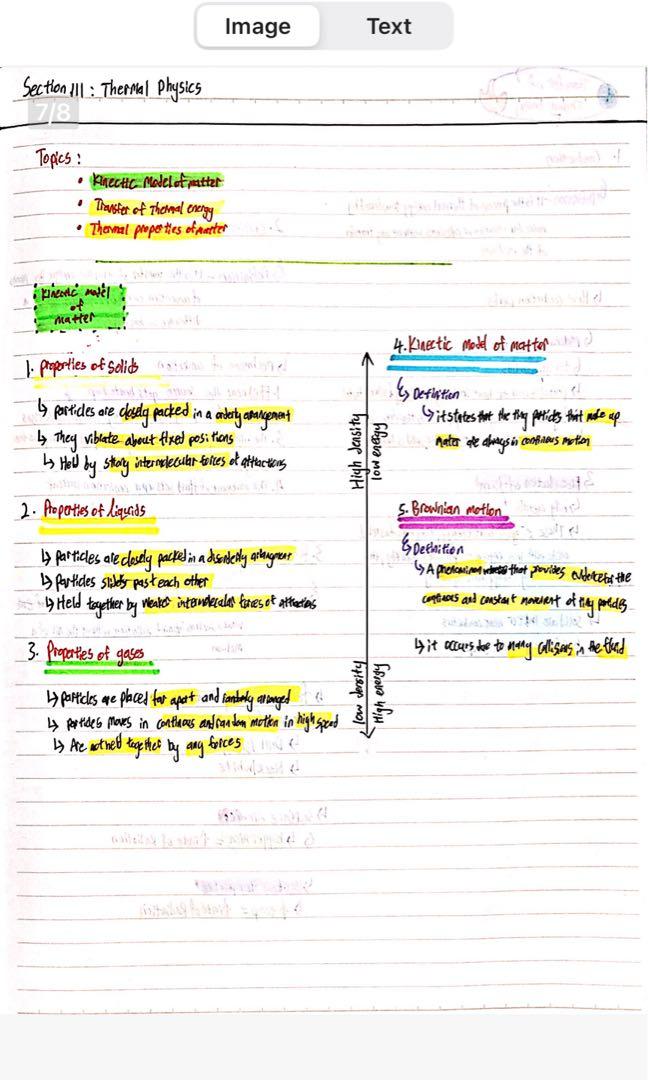 Image Text
Section III : Thermal Physics
7/8
Topics :
• Kinectic Model of matter
• Transfer of Thermal energy
• Thermal properties of matter
Kinectic model
of
matter
1. Properties of Solids
↳ particles are closely packed in a orderly arrangement
↳ They vibrate about fixed positions
↳ Held by strong intermolecular forces of attractions
2. Properties of liquids
↳ particles are closely packed in a disorderly arrangment
↳ particles slides past each other
↳ Held together by weaker intermolecular forces of attractions
3. Properties of gases
↳ particles are placed far apart and randomly arranged
↳ particles moves in continous and random motion in high speed
↳ Are not held together by any forces
High density
low energy
low density
High energy
4. Kinectic model of matter
↳ Definition
↳ it states that the tiny particles that make up
matter are always in continous motion
5. Brownian motion
↳ Definition
↳ A phenomenon that provides evidence for the
continous and constant movement of tiny particles
↳ it occurs due to many collisions in the fluid